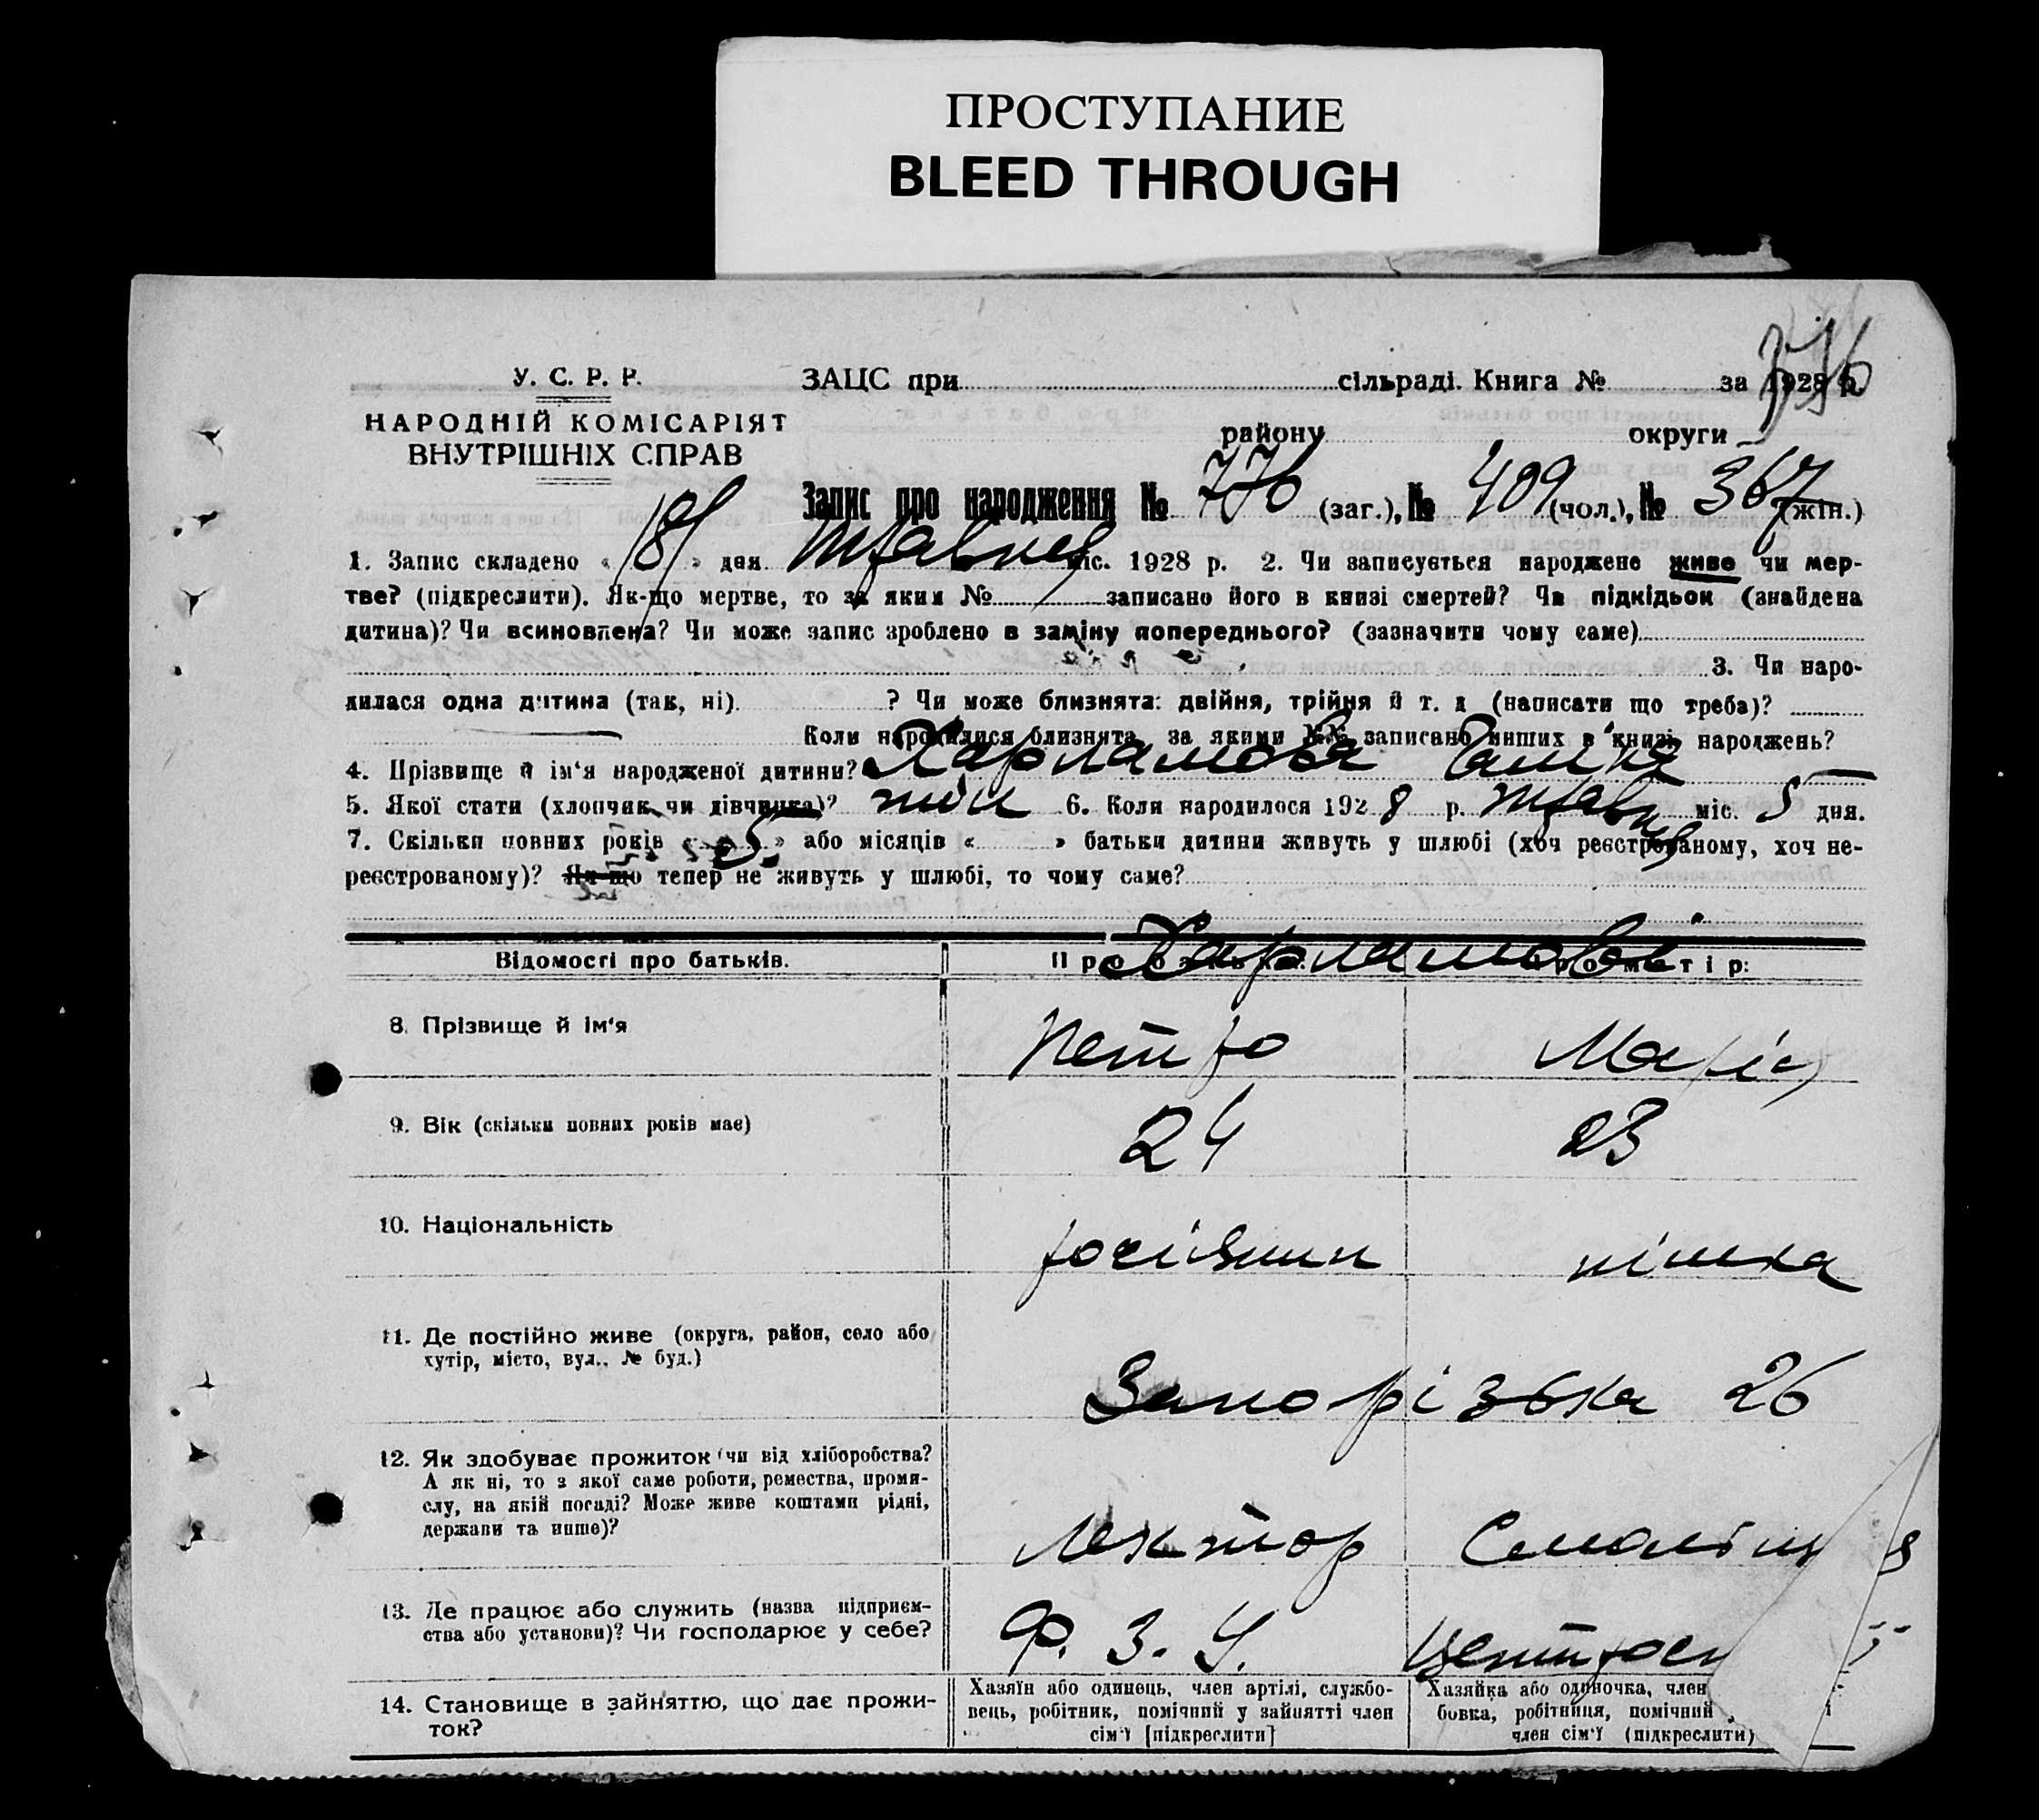 ПРОСТУПАНИЕ
BLEED THROUGH
776
У. С. Р. Р. ЗАЦС при сільраді. Книга № за 1928 р.
НАРОДНІЙ КОМІСАРІЯТ
ВНУТРІШНІХ СПРАВ
району округи
Запис про народження № 776 (заг.), № 409 (чол.), № 367 (жін.)
1. Запис складено « 18 » дня травня міс. 1928 р. 2. Чи записується народжене живе чи мер-
тве? (підкреслити). Як-що мертве, то за яким № записано його в книзі смертей? Чи підкідьок (знайдена
дитина)? Чи всиновлена? Чи може запис зроблено в заміну попереднього? (зазначити чому саме)
3. Чи наро-
дилася одна дитина (так, ні) ? Чи може близнята: двійня, трійня й т. д (написати що треба)?
Коли народилися близнята, за якими №№ записано инших в книзі народжень?
4. Прізвище й ім'я народженої дитини? Харламова Галина
5. Якої стати (хлопчик чи дівчинка)? жін 6. Коли народилося 1928 р. травня міс. 5 дня.
7. Скільки повних років « 5 » або місяців « » батьки дитини живуть у шлюбі (хоч реєстрованому, хоч не-
реєстрованому)? Як-що тепер не живуть у шлюбі, то чому саме?
Харламові
Відомості про батьків. Про батька: Про матір:
8. Прізвище й ім'я Петро Марія
9. Вік (скільки повних років має) 24 23
10. Національність росіянин німка
11. Де постійно живе (округа, район, село або
хутір, місто, вул., № буд.)
Запорізька 26
12. Як здобуває прожиток (чи від хліборобства?
А як ні, то з якої саме роботи, ремества, проми-
слу, на якій посаді? Може живе коштами рідні,
держави та инше)?
Лектор
13. Де працює або служить (назва підприєм-
ства або установи)? Чи господарює у себе?
Ф. З. У.
14. Становище в зайняттю, що дає прожи-
ток?
Хазяїн або одинець, член артілі, службо-
вець, робітник, помічний у зайнятті член
сім'ї [підкреслити]
Хазяйка або одиночка, член
бовка, робітниця, помічний
член сім'ї (підкреслити)